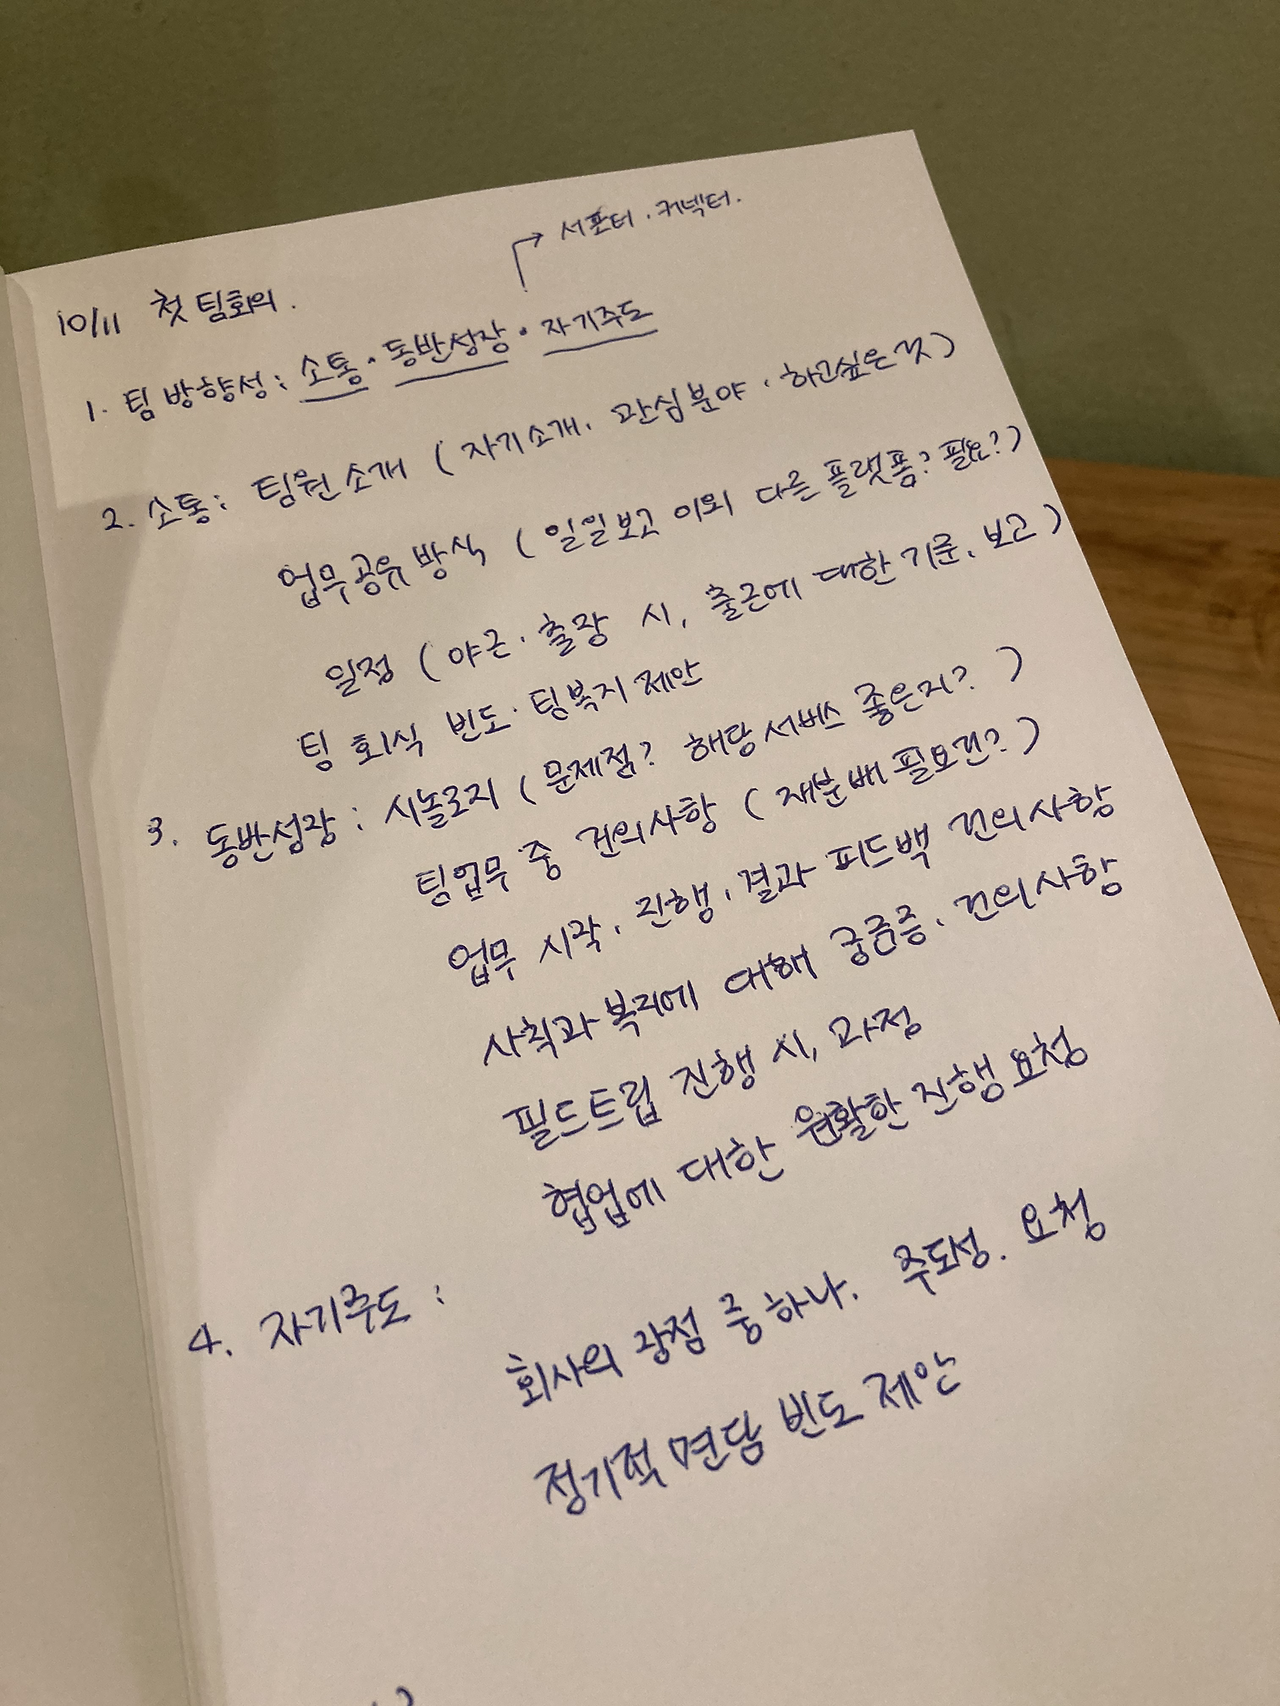 → 서포터 · 커넥터.
10/11 첫 팀회의.
1. 팀 방향성 : 소통 · 동반성장 · 자기주도
2. 소통 : 팀원 소개 ( 자기소개, 관심분야 · 하고싶은 것 )
업무공유 방식 ( 일일보고 이외 다른 플랫폼? 필요? )
일정 ( 야근 · 출장 시, 출근에 대한 기준, 보고 )
팀 회식 빈도 · 팀복지 제안
3. 동반성장 : 시놀로지 ( 문제점? 해당서비스 좋은지? )
팀업무 중 건의사항 ( 재분배 필요건? )
업무 시작, 진행, 결과 피드백 건의사항
사칙과 복지에 대해 궁금증, 건의사항
필드트립 진행 시, 과정
협업에 대한 원활한 진행 요청
4. 자기주도 :
회사의 장점 중 하나. 주도성. 요청
정기적 면담 빈도 제안